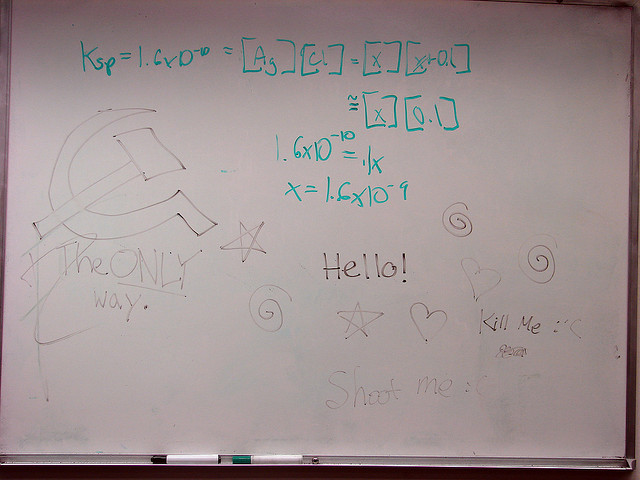 Ksp = 1.6x10⁻¹⁰ = [Ag][Cl] = [x][x+0.1]
≅ [x][0.1]
1.6x10⁻¹⁰ = .1x
x = 1.6x10⁻⁹
The ONLY
way.
Hello!
Kill Me :'(
Shoot me :(